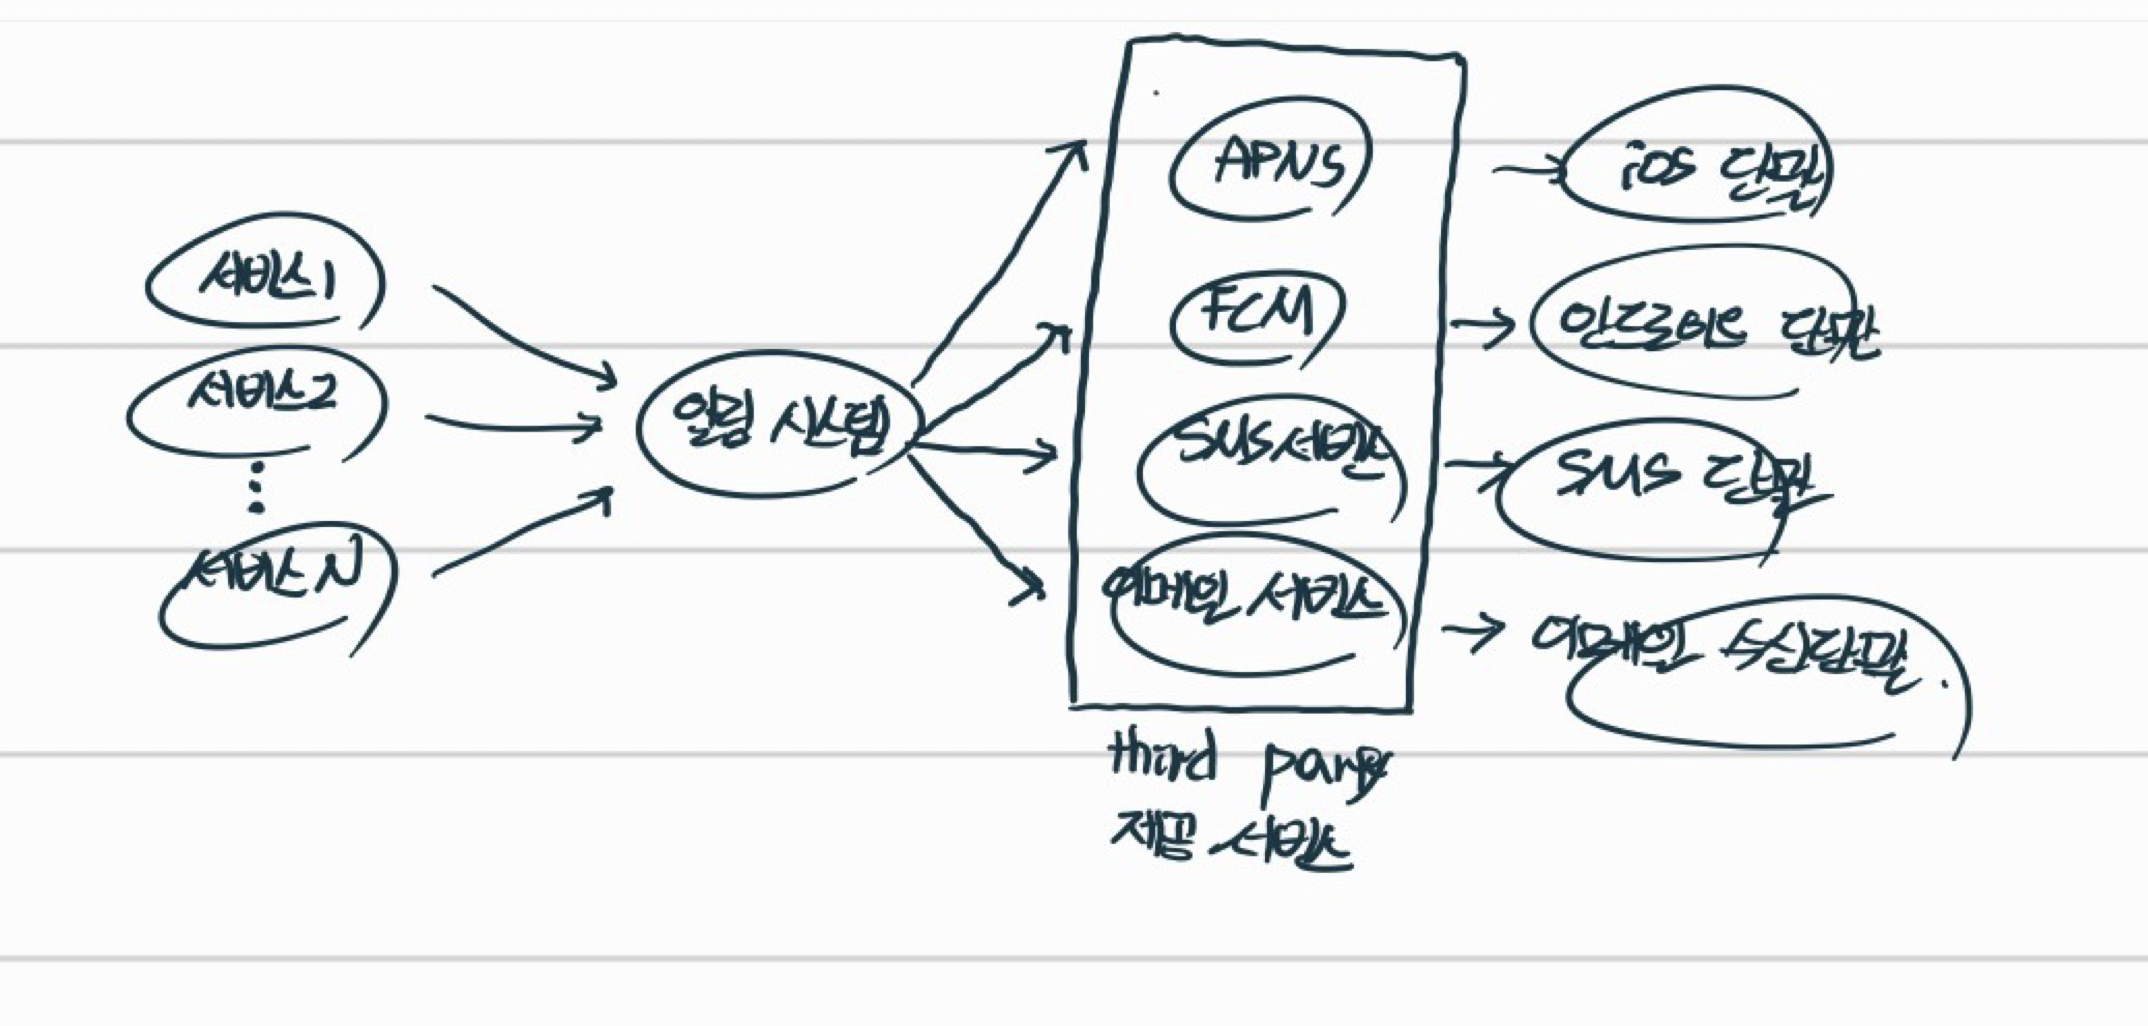 서비스1
서비스2
서비스N
알림 시스템
APNS
FCM
SMS 서비스
이메일 서비스
third party
제공 서비스
iOS 단말
안드로이드 단말
SMS 단말
이메일 수신단말.